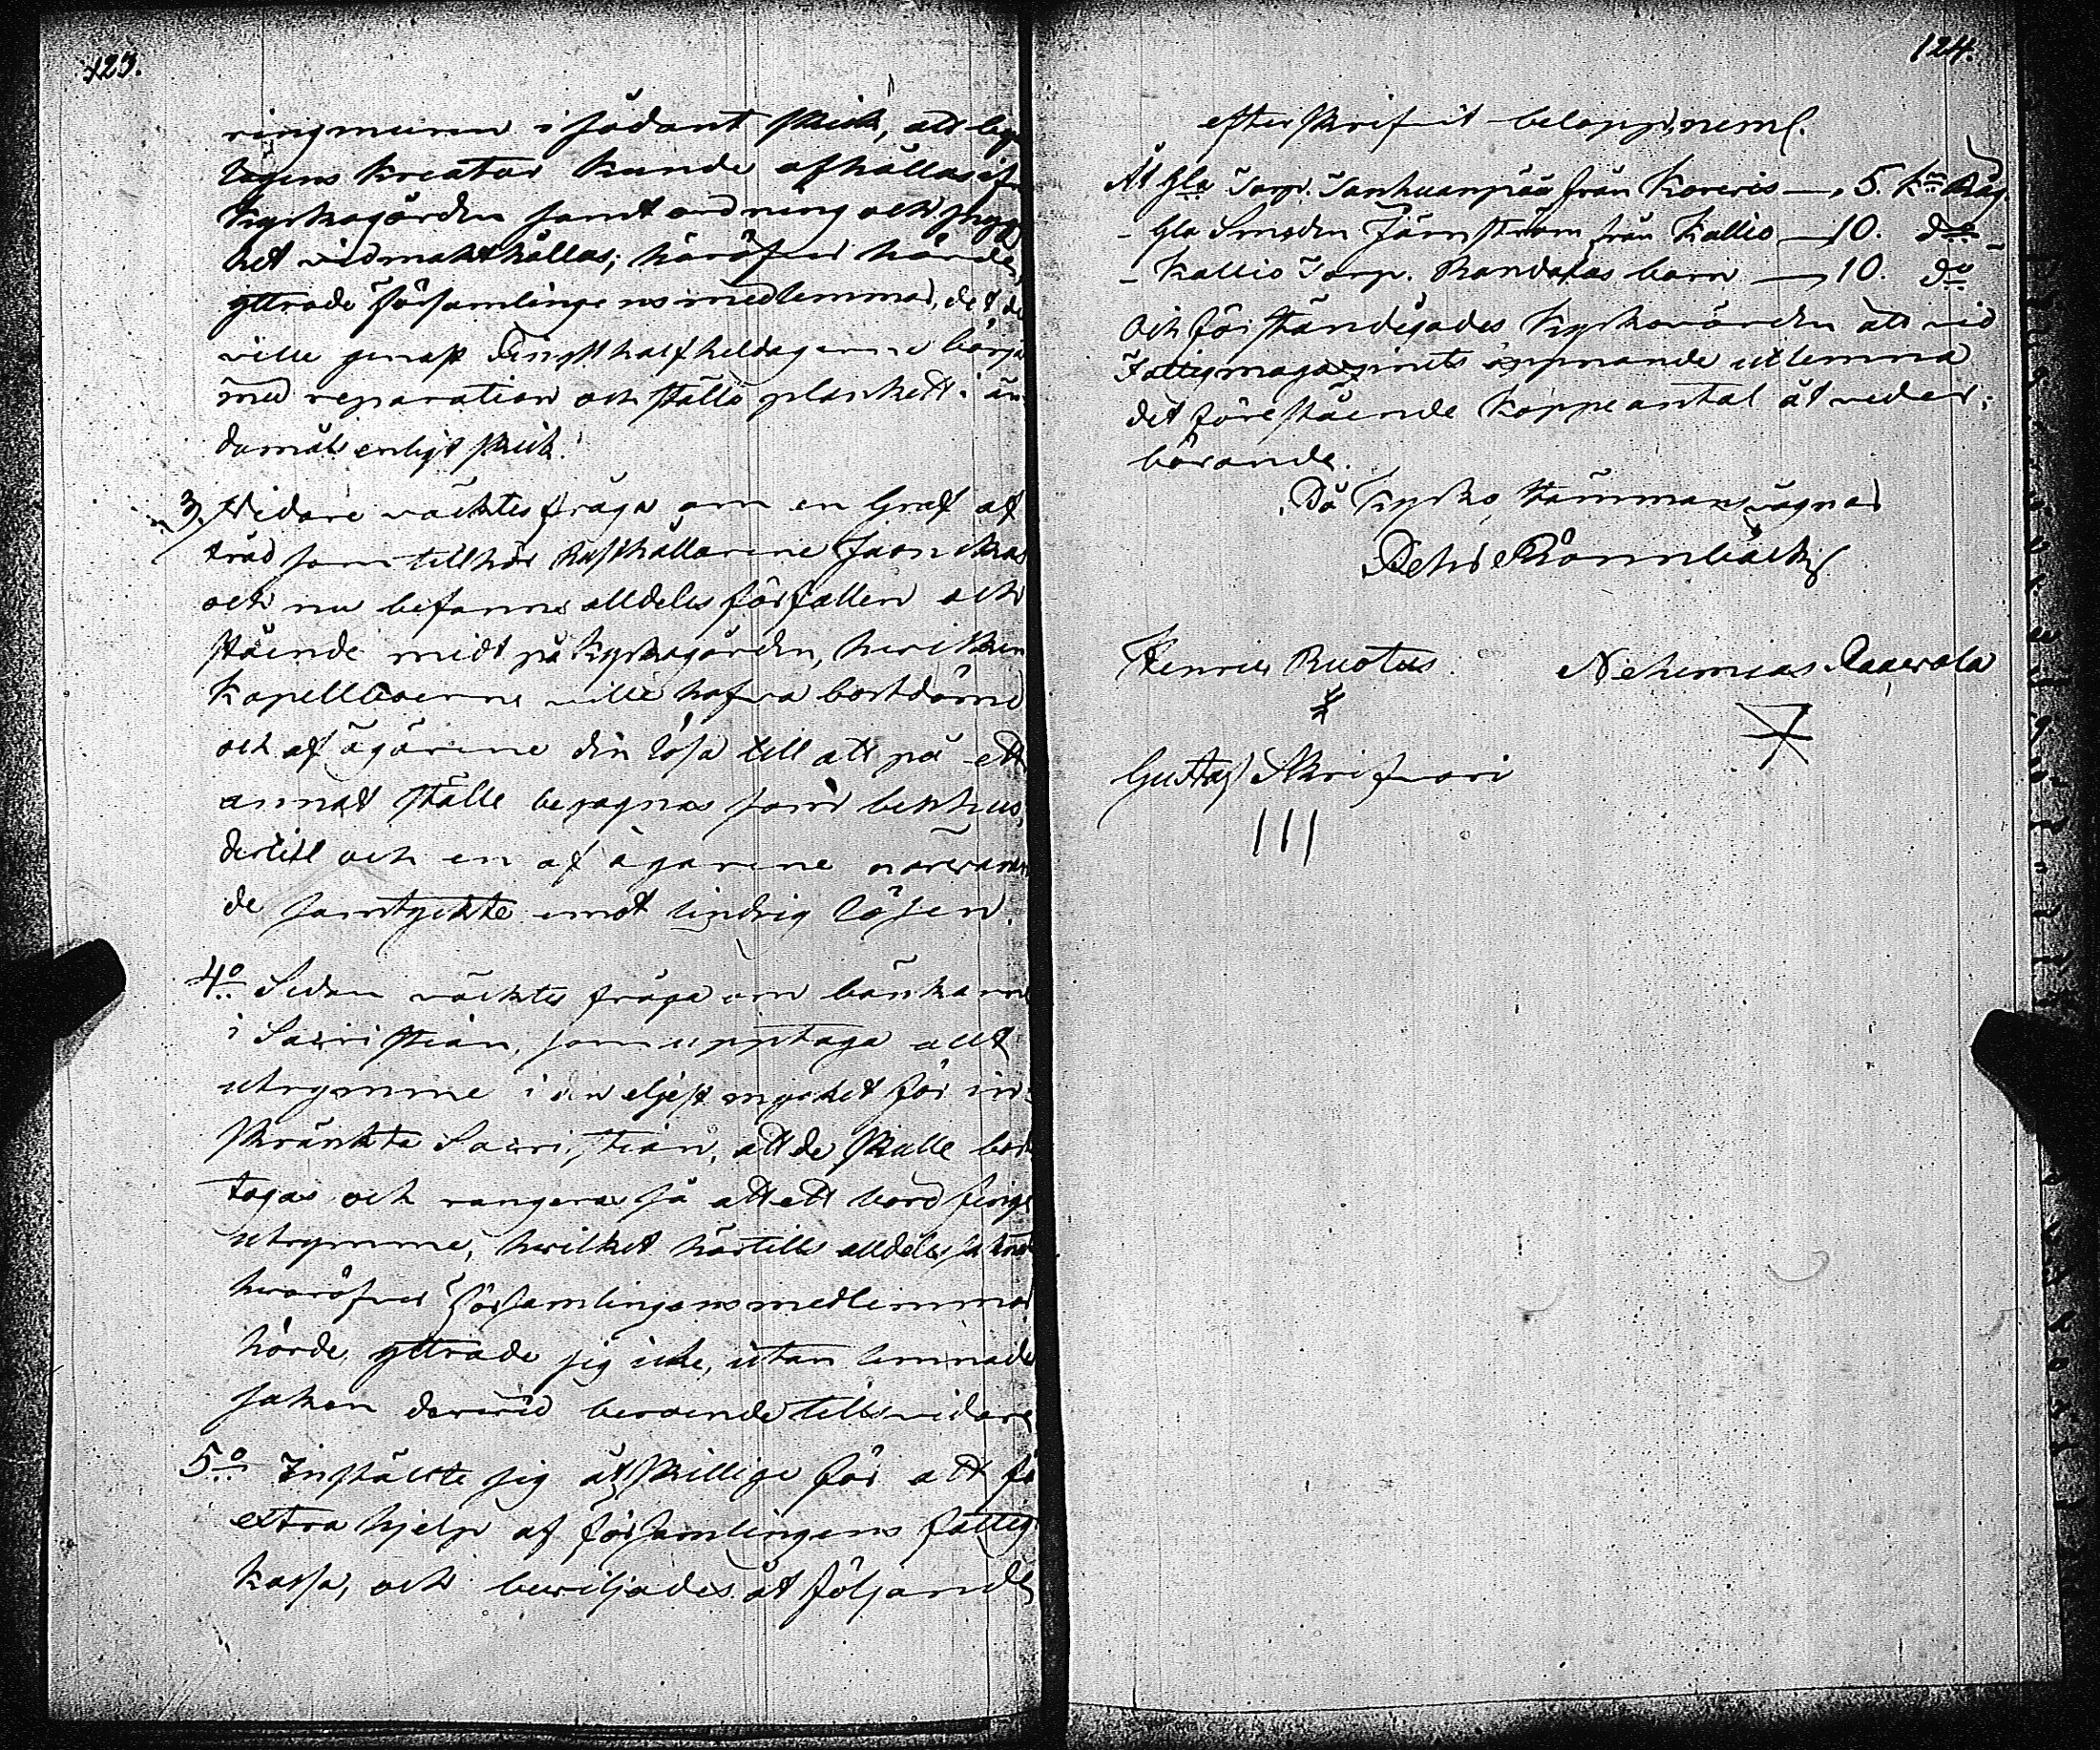 123.
ringmuren i sådant skick, att
kreatur kunde afhållas
Kyrkogården samt ordning och snygg
het vidmakthållas; häröfver hörde,
yttrade Församlingens medlemmar, det de
ville genast Pingst halfheldagarne börja
med reparation och ställa planket i än
damåls enligt skick.
3. Widare väcktes fråga om en Graf af
träd som tillhör Rusthållarene
och nu befanns alldeles förfallen och
stående midt på Kyrkogården, hvilken
Kapellboerne ville hafva bortdömd
och af ägarene den lösa till att på ett
annat ställe begagnas som benhus,
dertill och en af ägarene närvaran
de samtyckte emot lindrig lösen.
4:o Sedan väcktes fråga om bänkarne
i Sacristian, som upptaga allt
utrymme i den eljest mycket för in-
skränkta Sacristian, att de skulle bort
tagas och rangeras så att ett bord finge
utrymme, hvilket härtills alldeles saknats
hvaröfver Församlingens medlemmar
hörde, yttrade sig icke, utan lemnade
saken dervid beroende tills vidare
5:o Inställte sig åtskillige för att få
extra hjelp af församlingens fattig
kassa, och beviljades åt följande
124.
efterskrifvit belopp, neml.
Åt Gla Torp. från Koveris — 5. K:r Råg.
- Gla Smeden Järnström från Kallio — 10. d:o
- Kallio Torp. barn — 10. d:o
Och förständigades Kyrkovärden att vid
Fattigmagazinets öppnande utlemna
det förestående Kappeantal åt veder-
börande.
På Kyrko Stämmans vägnar
Petr Rönnbäck
Henric Ruotus. Nehemias
Gustaf Skrifvari
III